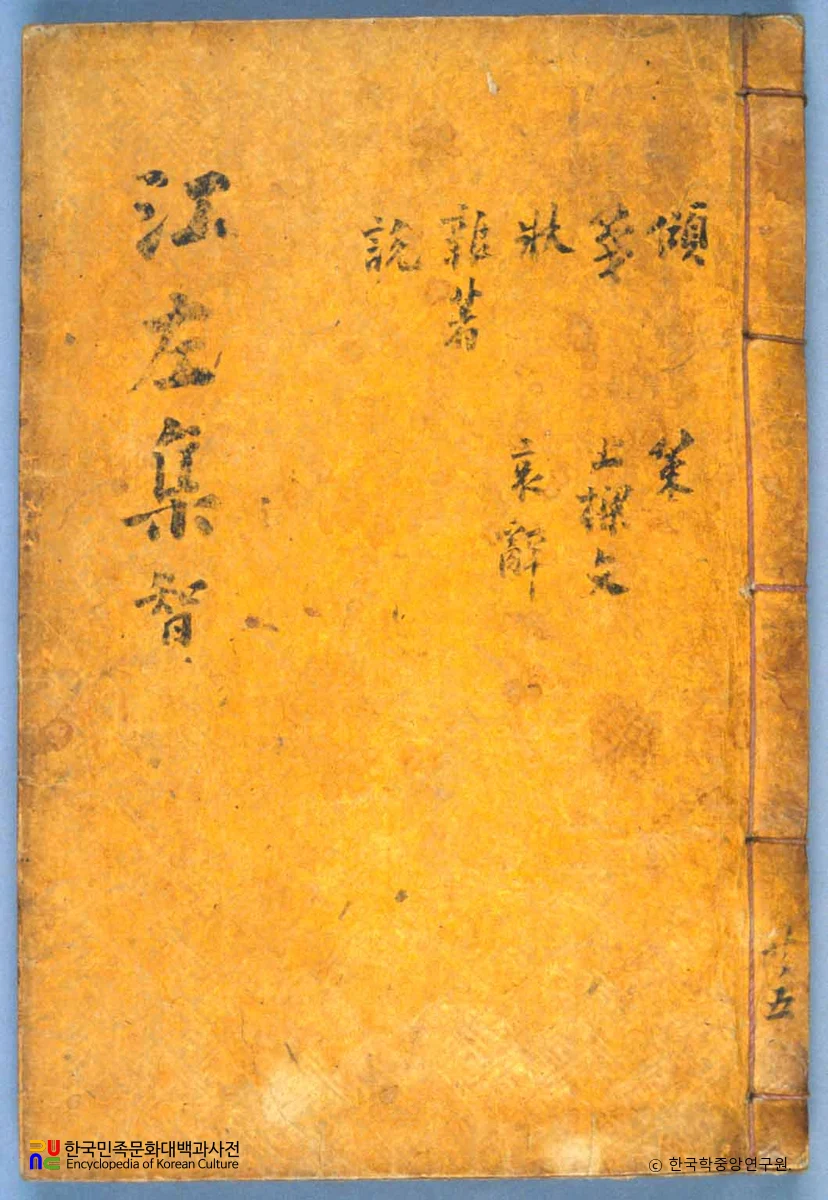 策
上樑文
狀 哀辭
雜著
說
江左集 智
共五
한국민족문화대백과사전
Encyclopedia of Korean Culture
© 한국학중앙연구원